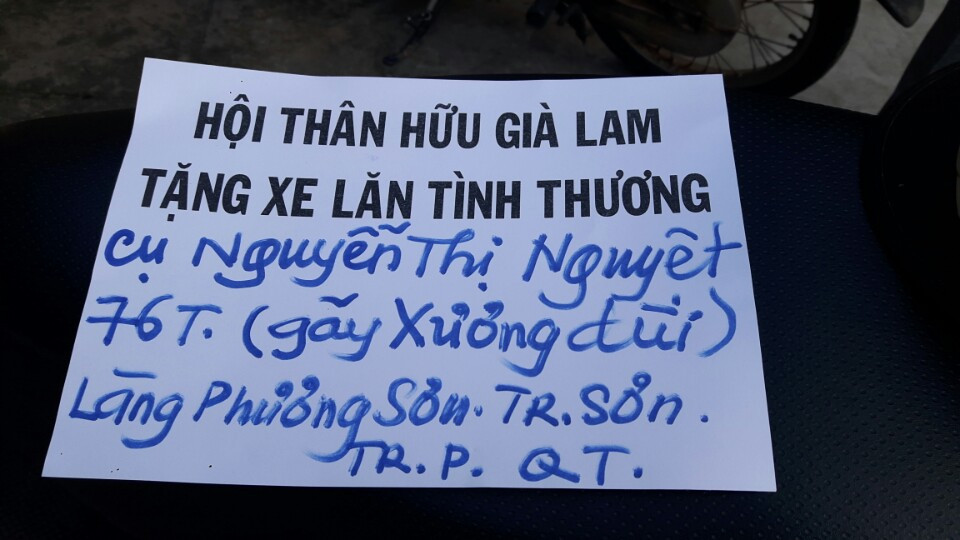 HỘI THÂN HỮU GIÀ LAM
TẶNG XE LĂN TÌNH THƯƠNG
Cụ Nguyễn Thị Nguyệt
76T. (gãy Xương đùi)
Làng Phương Sơn. TR. Sơn.
TR. P. QT.